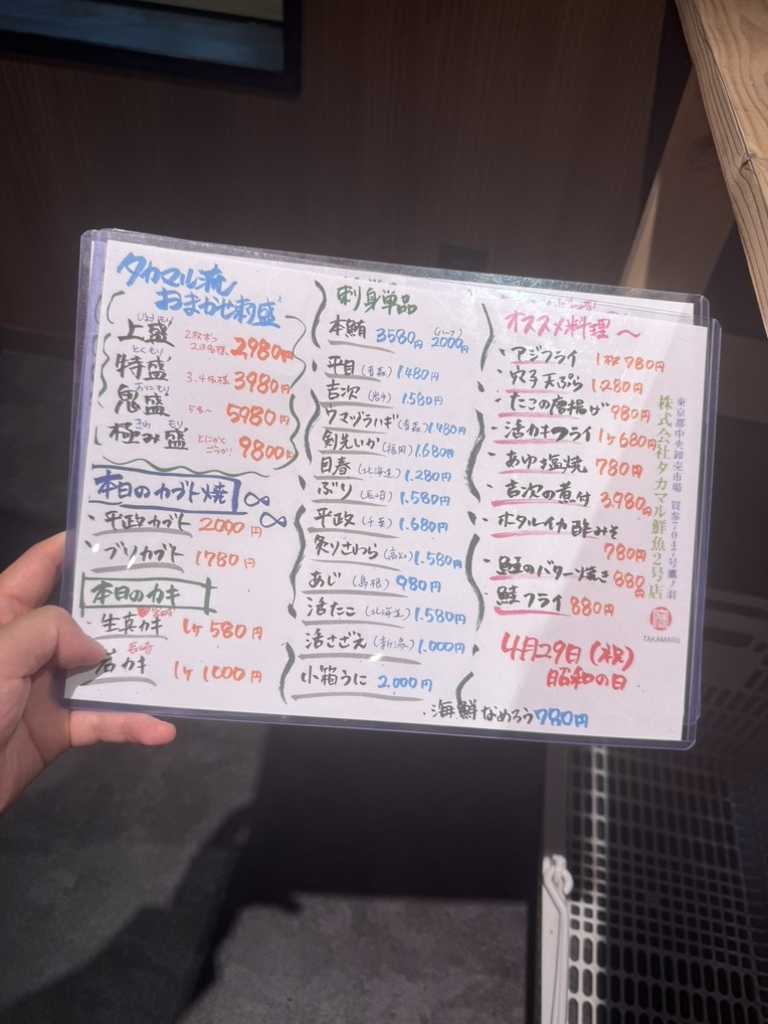 タカマル流
おまかせ刺盛
じょうもり
上盛 2枚ずつ 2980円
とくもり
特盛 3.4名様 3980円
おにもり
鬼盛 5名〜 5980円
きわ もり
極み盛 とにかくごうか! 9800円
本日のカブト焼
平政カブト 2000円
ブリカブト 1780円
本日のカキ
生真カキ 1ヶ 580円
長崎
岩カキ 1ヶ 1000円
刺身単品
本鮪 3580円 (ハーフ) 2000円
平目 (青森) 1.480円
吉次 1580円
ウマヅラハギ (青森) 1.480円
剣先いか (福岡) 1.680円
目春 (北海道) 1.280円
ぶり (長崎) 1.580円
平政 (千葉) 1.680円
炙りさわら (高知) 1.580円
あじ (島根) 980円
活たこ (北海道) 1.580円
活さざえ (新潟) 1.000円
小箱うに 2.000円
オススメ料理〜
・アジフライ 1枚 780円
・穴子天ぷら 1280円
・たこの唐揚げ 980円
・活カキフライ 1ヶ 680円
・あゆ塩焼 780円
・吉次の煮付 3.980円
・ホタルイカ酢みそ
780円
・鮭のバター焼き 880円
・鮭フライ 880円
4月29日(祝)
昭和の日
・海鮮なめろう 780円
東京都中央卸売市場
株式会社タカマル鮮魚2号店
TAKAMARU